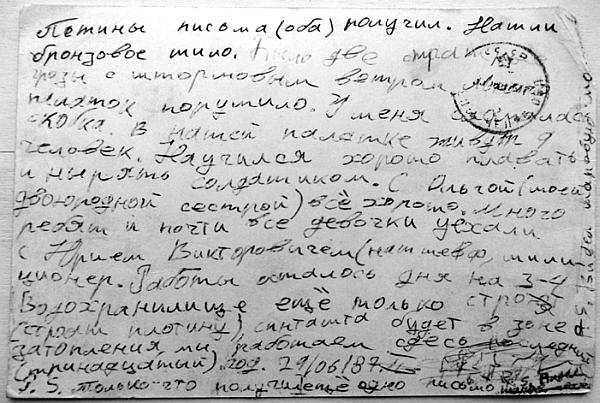 Петины письма (оба) получил. Нашли
бронзовое шило. Было две страш
грозы с штормовым ветром
палаток порушило. У меня сломалась
ковка. В нашей палатке живут 9
человек. Научился хорошо плавать
и нырять солдатиком. С Ольгой (моей
двоюродной сестрой) всё хорошо. Много
ребят и почти все девочки уехали
с Юрием Викторовичем (наш шеф, мили
ционер. Работы осталось дня на 3-4
Водохранилище ещё только строят
(строят плотину), синташта будет в зоне
затопления мы работаем здесь последний
(тринадцатый) год. 29/06/87г.
P. S. Только что получил ещё одно письмо
P.S.